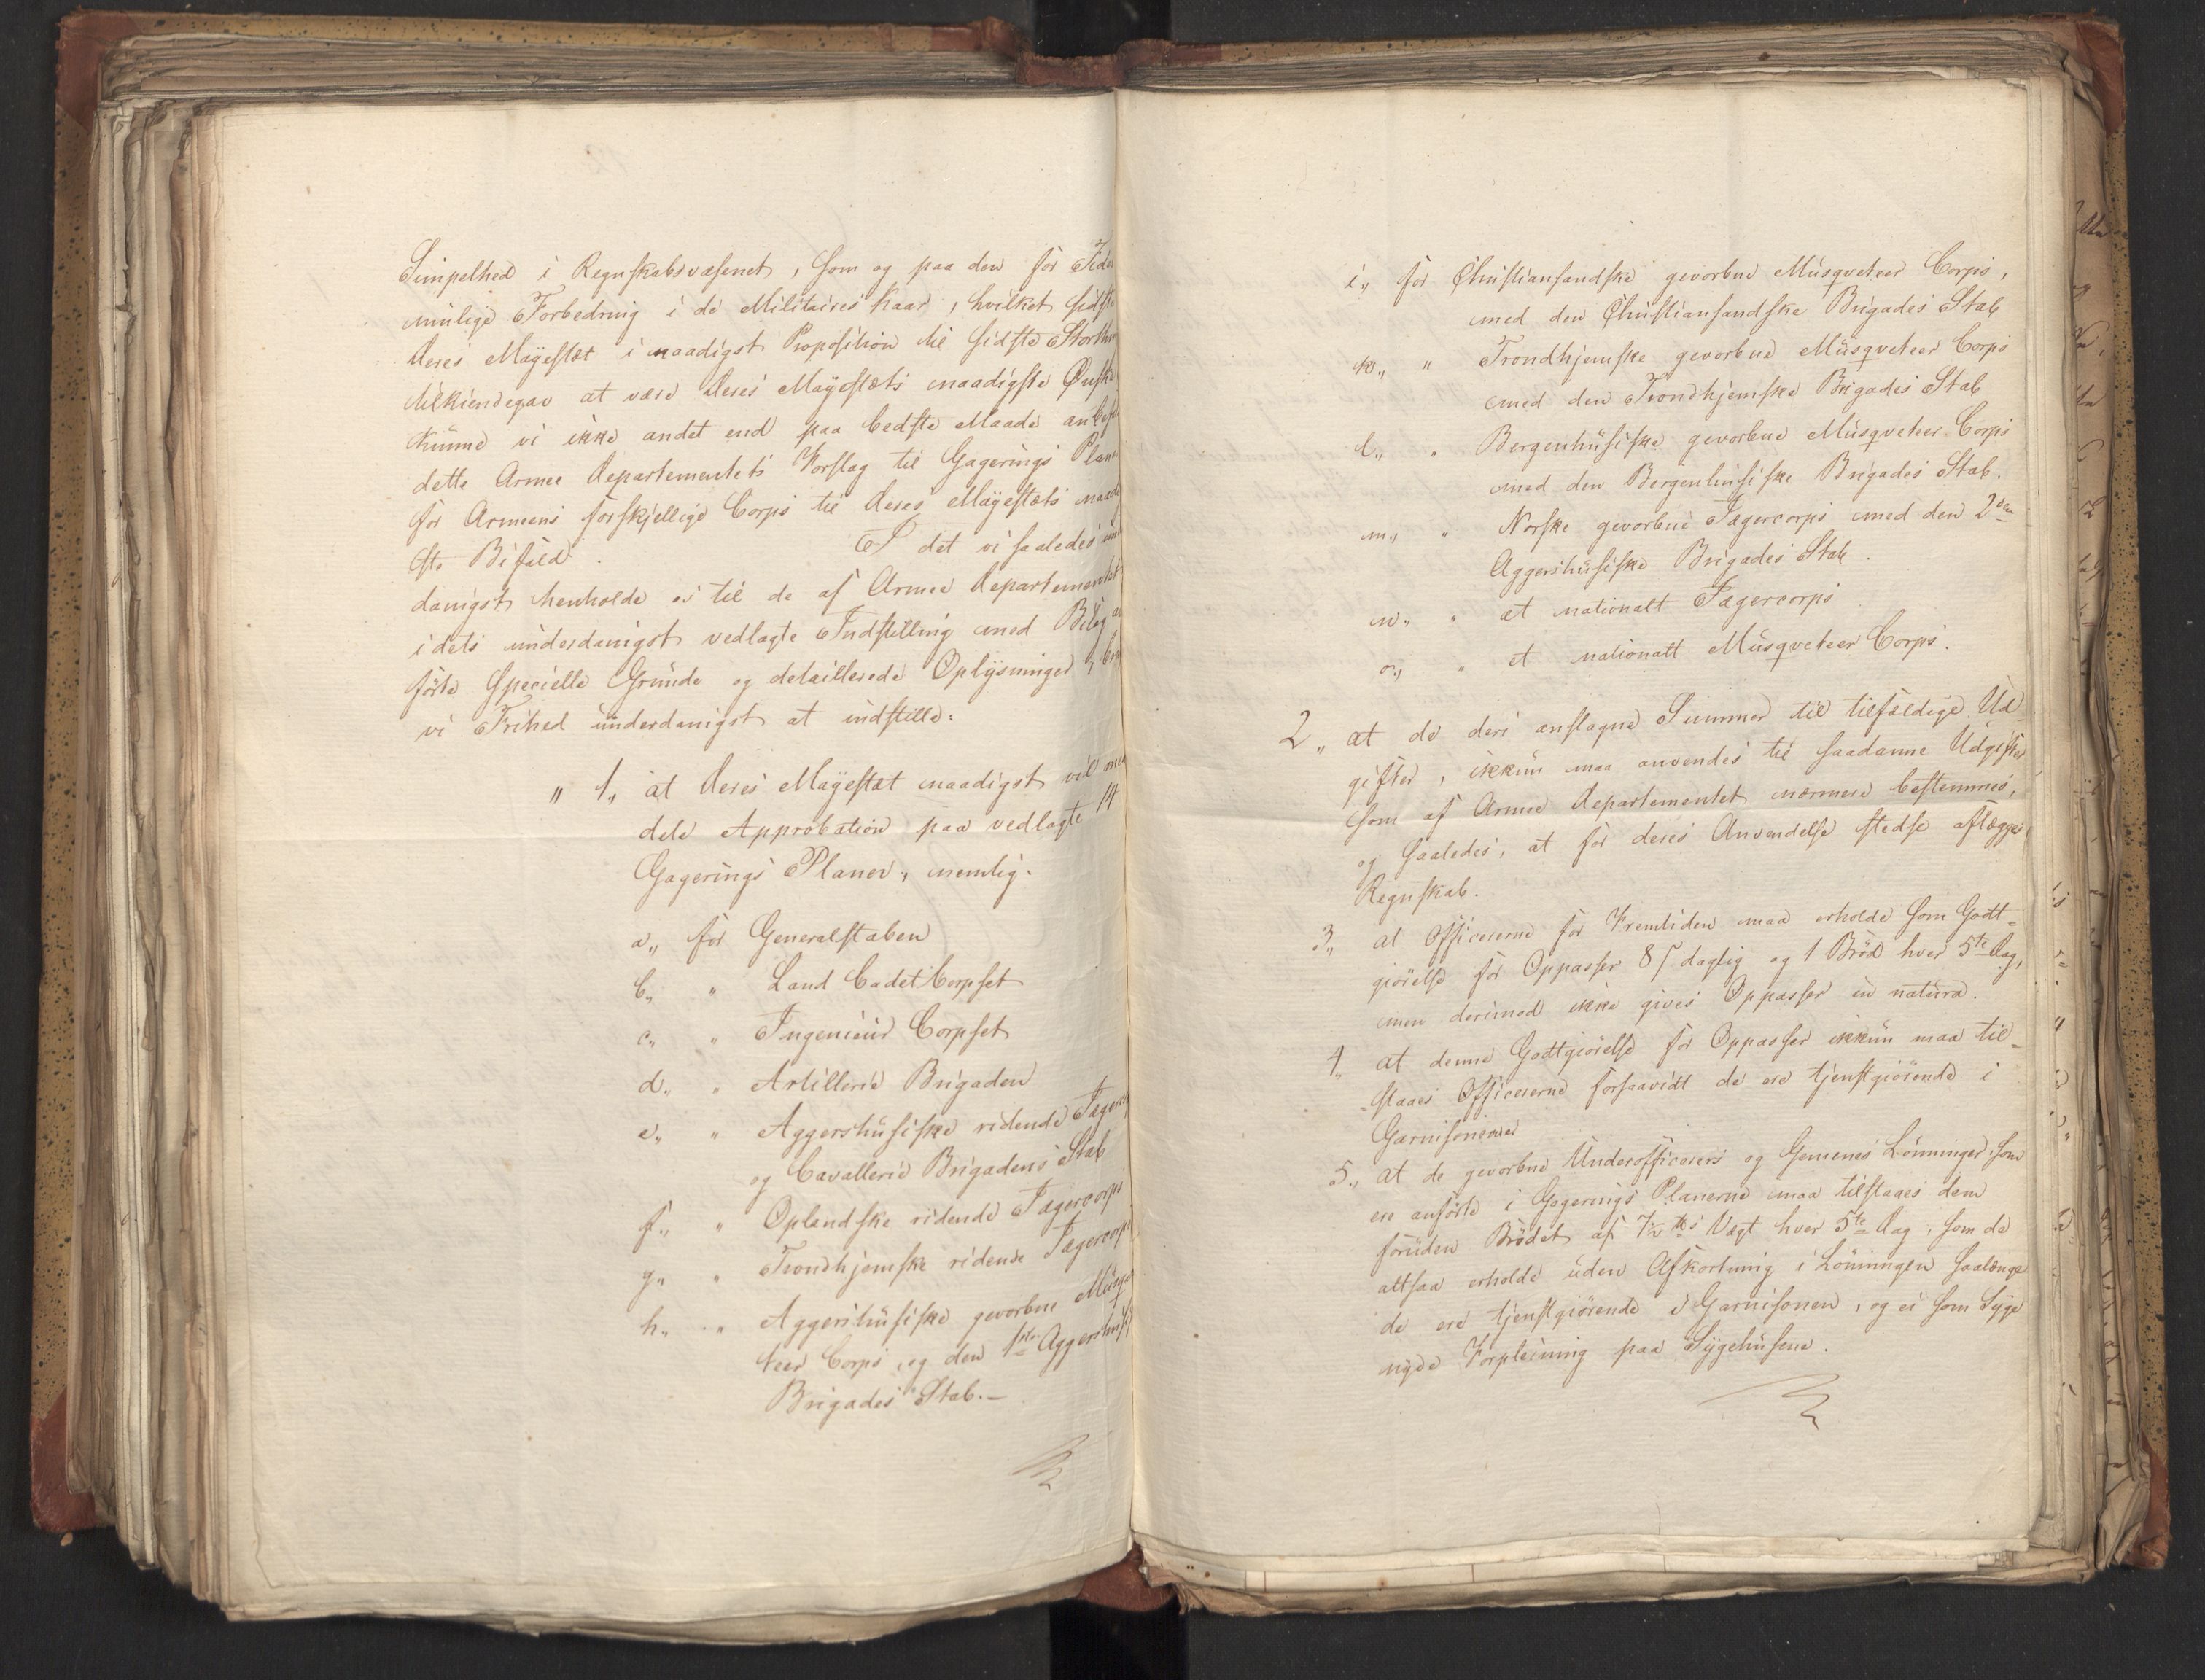 Simpelhed i Regnskabsvæsenet, som og paa den for Tiden
mulige Forbedring i de Militaires Kaar, hvilket sidste
Deres Mayestæt i naadigst Proposition til sidste Storthing
tilkiendegav at være Deres Mayestæts naadigste Ønske
kunne vi ikke andet end paa bedste Maade anbefale
dette Armee Departementets Forslag til Gagerings Planer
for Armeens forskjellige Corps til Deres Mayestæts naadig
ste Bifald.
I det vi saaledes under
danigst henholde os til de af Armee Departementet
i dets underdanigst vedlagte Indstilling med Bilag an
førte specielle Grunde og detaillerede Oplysninger,
vi Frihed underdanigst at indstille:
" 1., at Deres Mayestæt naadigst vil med
dele Approbation paa vedlagte 14
Gagerings Planer, nemlig:
a., for Generalstaben
b., " Land Cadet Corpset
c., " Ingenieur Corpset
d., " Artillerie Brigaden
e., " Aggershusiske ridende Jægercorps
og Cavallerie Brigadens Stab
f., " Oplandske ridende Jægercorps
g., " Trondhjemske ridende Jægercorps
h., " Aggershusiske gevorbne Musqve
teer Corps, og den 1ste Aggershusiske
Brigades Stab.—
i., for Christiansandske gevorbne Musqveteer Corps,
med den Christiansandske Brigades Stab
k., " Trondhjemske gevorbne Musqveteer Corps
med den Trondhjemske Brigades Stab
l., " Bergenhusiske gevorbne Musqveteer Corps
med den Bergenhusiske Brigades Stab.
m., " Norske gevorbne Jægercorps med den 2den
Aggershusiske Brigades Stab.
n., " et nationalt Jægercorps
o., " et nationalt Musqveteer Corps.
2., at de deri anslagne Summer til tilfældige Ud
gifter, ikkun maa anvendes til saadanne Udgifter
som af Armee Departementet nærmere bestemmes,
og saaledes, at for deres Anvendelse stedse aflægges
Regnskab.
3., at Officererne for Fremtiden maa erholde som Godt-
giörelse for Oppasser 8 ſ daglig og 1 Bröd hver 5te Dag,
men derimod ikke gives Oppasser in natura.
4., at denne Godtgiörelse for Oppasser ikkun maa til-
staaes Officererne forsaavidt de ere tjenstgiörende i
Garnisonerne
5., at de gevorbne Underofficerers og Gemenes Lönninger som
ere anförte i Gagerings Planerne maa tilstaaes dem
foruden Brödet af 7½ ℔s Vægt hver 5te Dag, som de
altsaa erholde uden Afkortning i Lönningen saalænge
de ere tjenstgiörende i Garnisonen, og ei som Syge
nyde Forpleining paa Sygehusene.